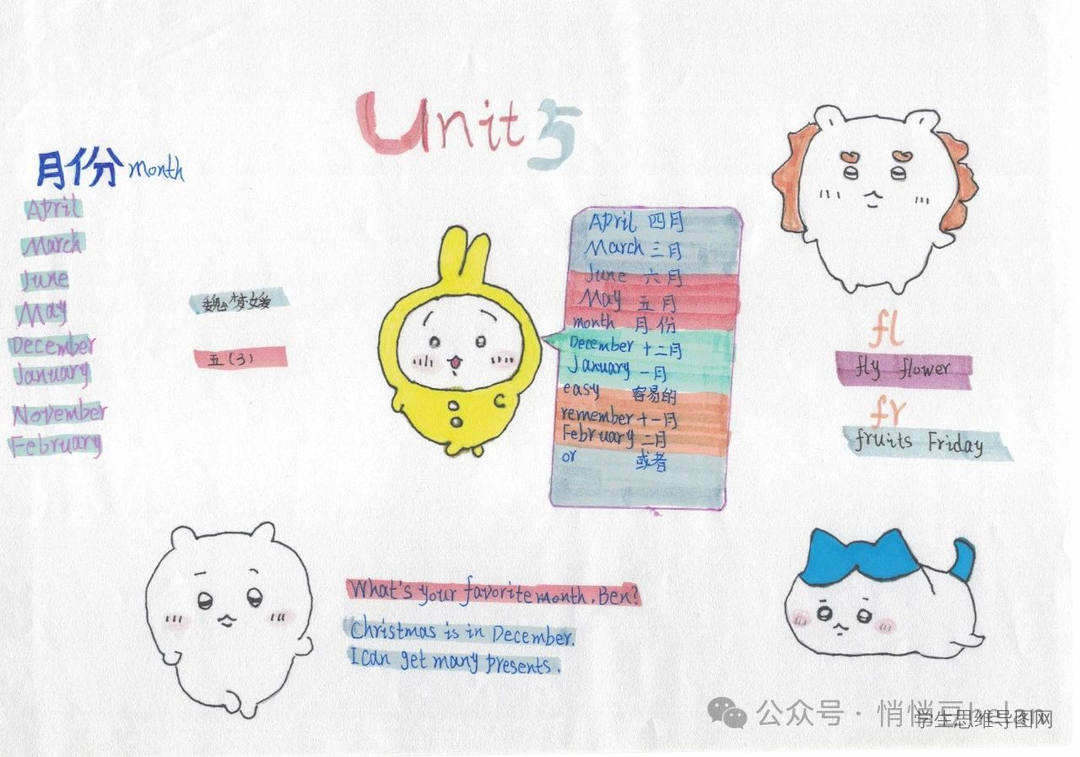 Unit 5
月份 month
April
March
June
May
December
January
November
February
魏梦媛
五(3)
April 四月
March 三月
June 六月
May 五月
month 月份
December 十二月
January 一月
easy 容易的
remember 十一月
February 二月
or 或者
fl
fly flower
fr
fruits Friday
What's your favorite month, Ben?
Christmas is in December.
I can get many presents.
公众号 · 悄悄
学生思维导图网